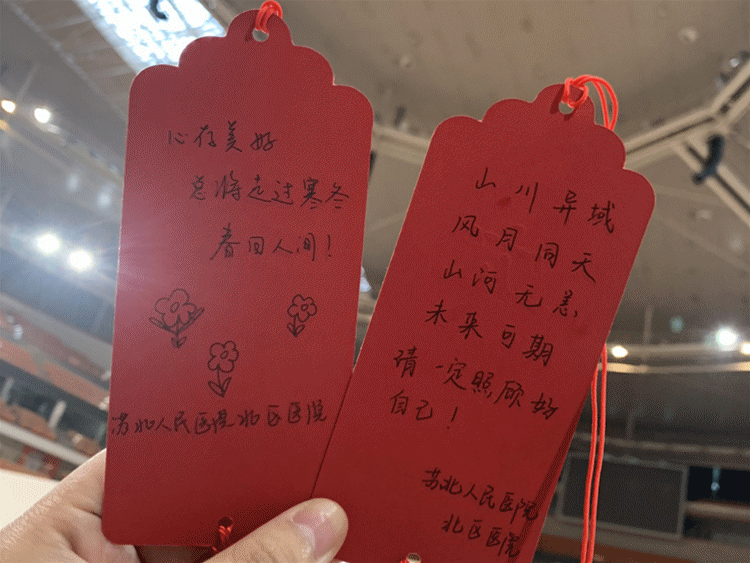 心存美好
总将走过寒冬
春回人间！
苏北人民医院北区医院
山川异域
风月同天
山河无恙
未来可期
请一定照顾好
自己！
苏北人民医院
北区医院